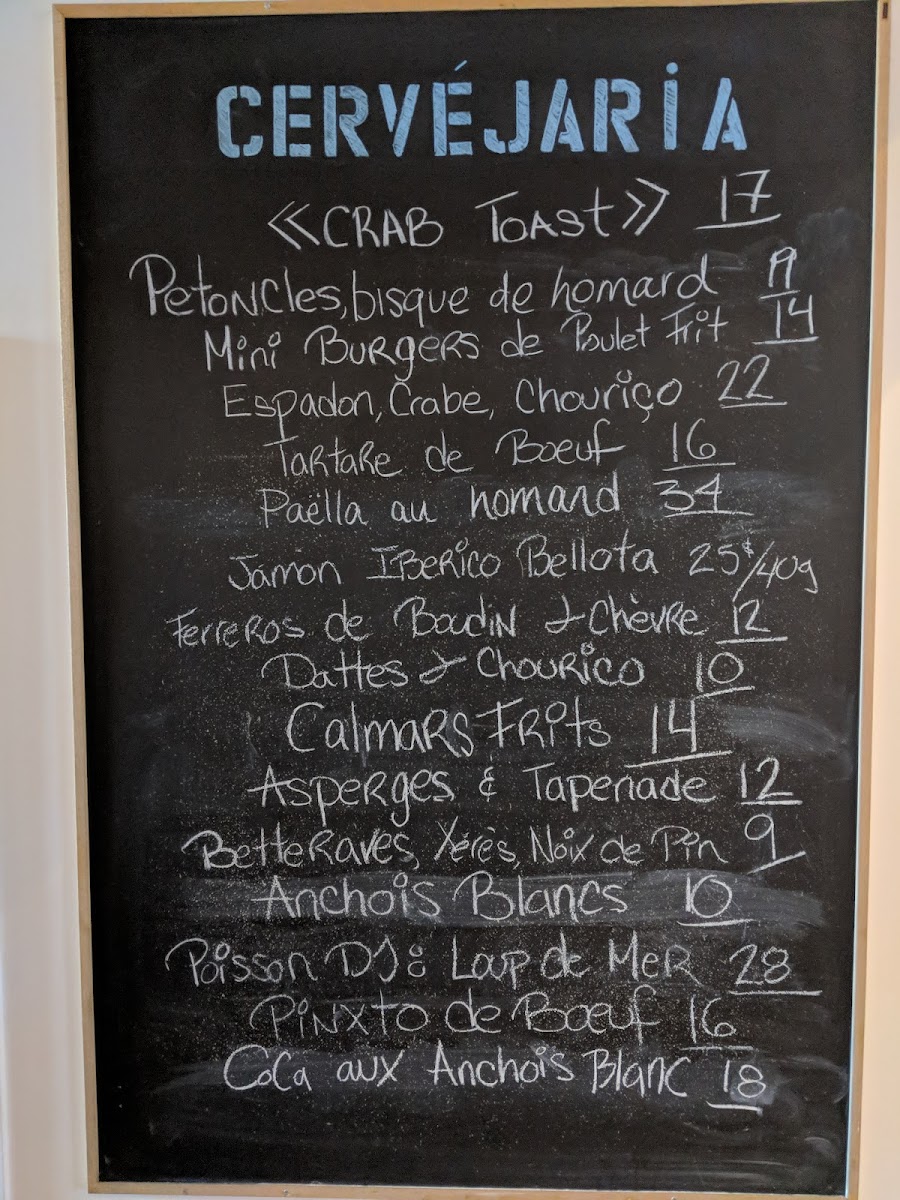 CERVÉJARIA
«CRAB TOAST» 17
Petoncles, bisque de homard
Mini Burgers de Poulet Frit 14
Espadon, Crabe, Chouriço 22
Tartare de Boeuf 16
Paëlla au homard 34
Jamon Iberico Bellota 25$/40g
Ferreros de Boudin & Chèvre 12
Dattes & Chourico 10
Calmars Frits 14
Asperges & Tapenade 12
Betteraves, Xérès, Noix de Pin 9
Anchois Blancs 10
Poisson DJ: Loup de Mer 28
Pinxto de Boeuf 16
Coca aux Anchois Blanc 18